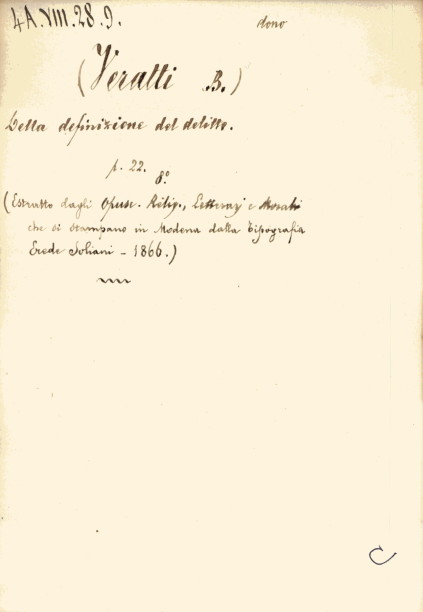 4A.VIII.28.9.
dono
(Veratti B.)
Della definizione del delitto.
p. 22.
8º
(Estratto dagli Opusc. Relig., Letterarj e Morali
che si stampano in Modena dalla Tipografia
Erede Soliani - 1866.)
C